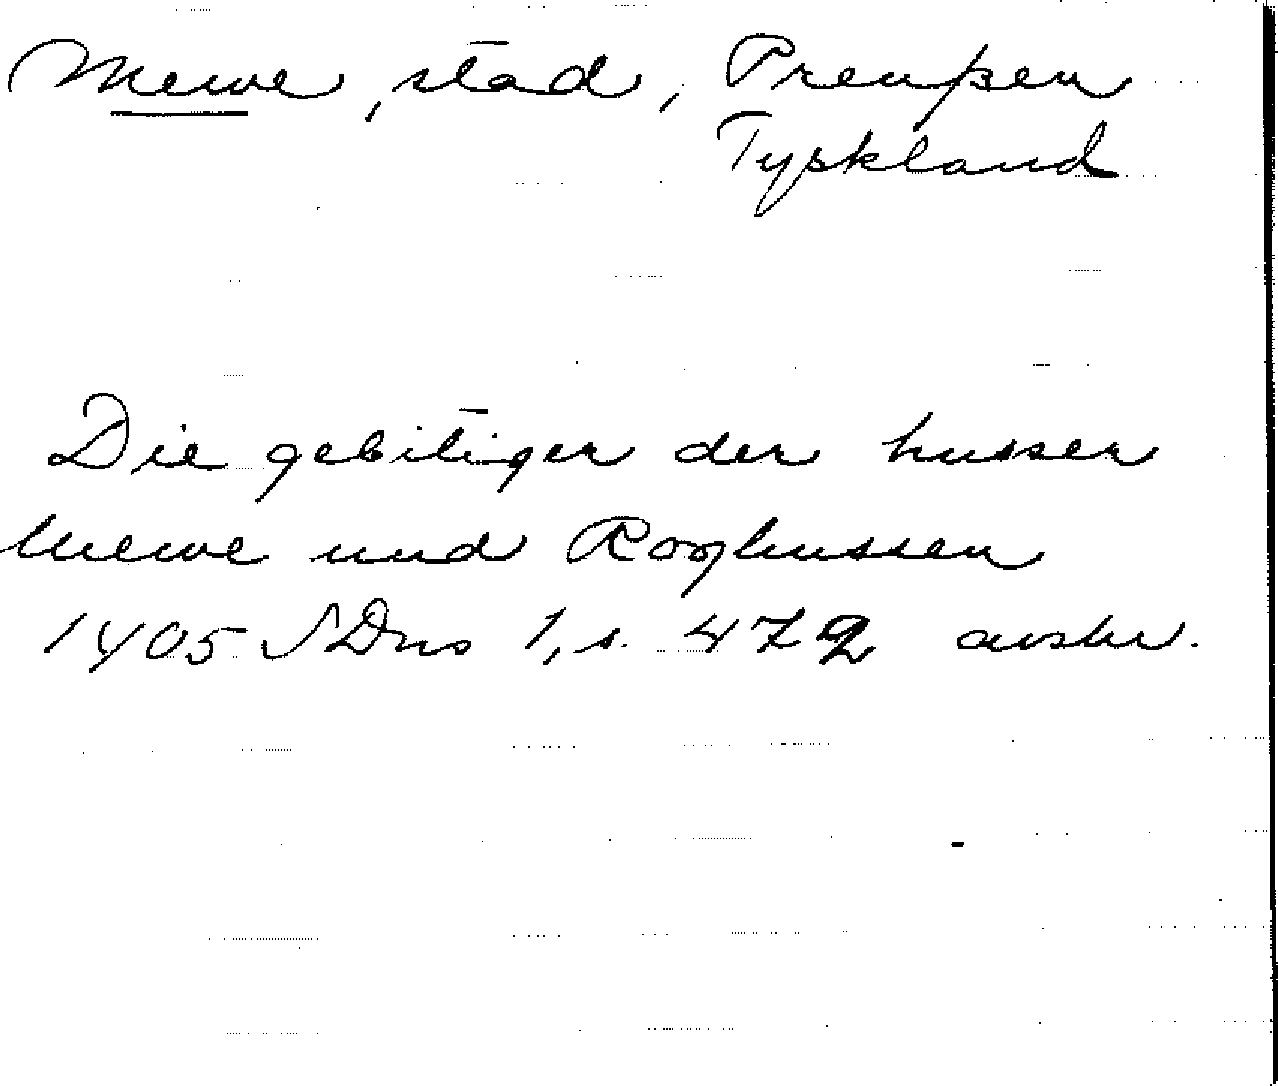 Mewe, stad, Preußen
Tyskland
Die gebitiger der husser
Mewe und Roghussen
1405 SDns 1, s. 472 avskr.